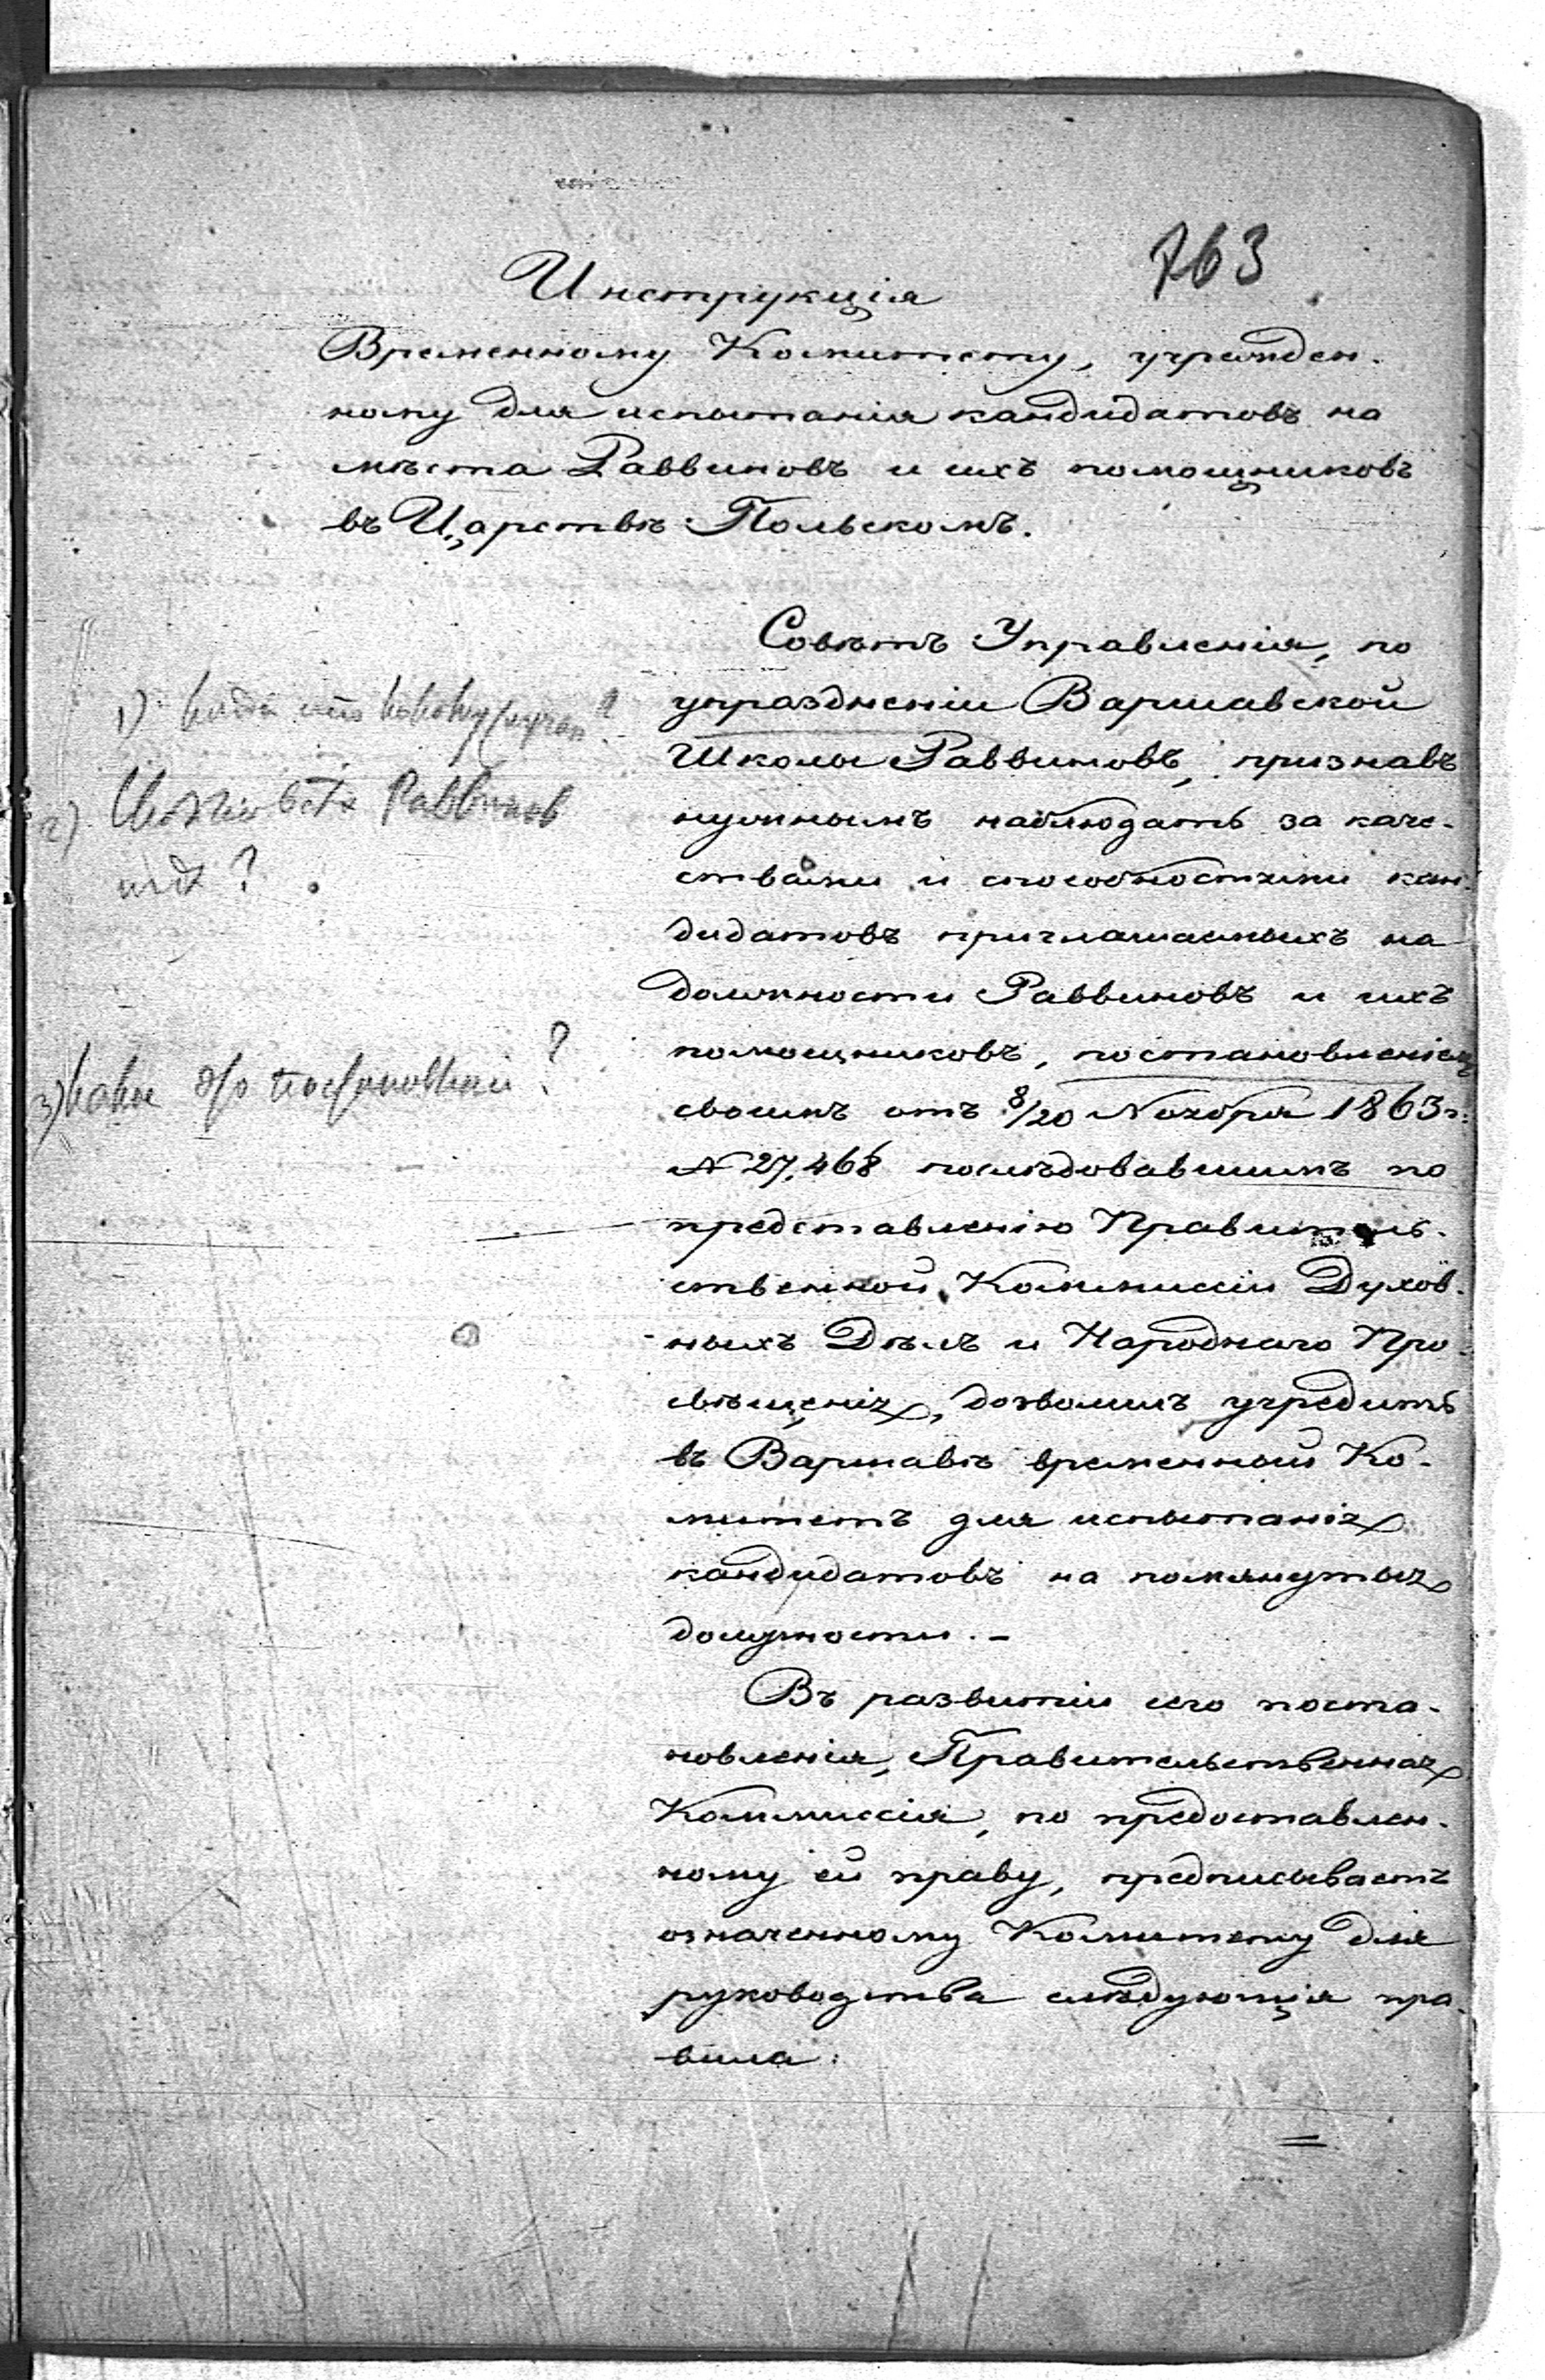 763
Инструкція
Временному Комитету, учрежден-
ному для испытанія кандидатовъ на
мѣста Раввиновъ и ихъ помощниковъ
въ Царствѣ Польскомъ.
Совѣтъ Управленія, по
упраздненіи Варшавской
Школы Раввиновъ, признавъ
нужнымъ наблюдать за каче-
ствами и способностями кан-
дидатовъ приглашаемыхъ на
должности Раввиновъ и ихъ
помощниковъ, постановленіемъ
своимъ отъ 8/20 Ноября 1863 г.
№ 27,468 послѣдовавшимъ по
представленію Правитель-
ственной Коммиссіи Духов-
ныхъ Дѣлъ и Народнаго Про-
свѣщенія, дозволилъ учредить
въ Варшавѣ временный Ко-
митетъ для испытанія
кандидатовъ на помянутыя
должности. –
Въ развитіи сего поста-
новленія, Правительственная
Коммиссія, по предоставлен-
ному ей праву, предписываетъ
означенному Комитету для
руководства слѣдующія пра-
вила:
1) когда
2) Раввинов
?
3) ?